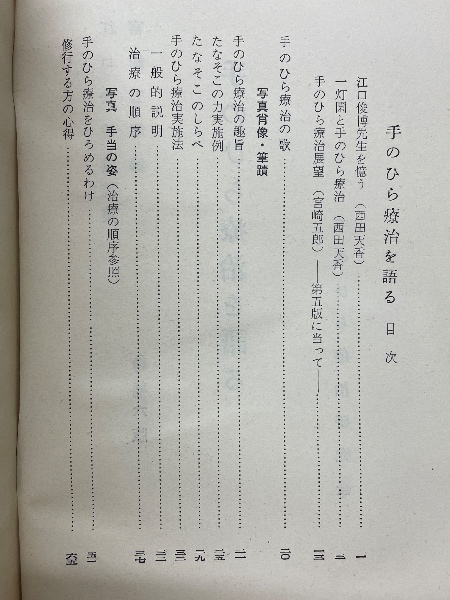 手のひら療治を語る 目次
江口俊博先生を憶う(西田天香)……一
一灯園と手のひら療治(西田天香)……三
手のひら療治展望(宮崎五郎)――第五版に当って――……一三
手のひら療治の歌……二〇
写真肖像・筆蹟
手のひら療治の趣旨……二一
たなそこの力実施例……二五
たなそこのしらべ……二九
手のひら療治実施法……
一般的説明……
治療の順序……三七
写真 手当の姿(治療の順序参照)
手のひら療治をひろめるわけ……五一
修行する方の心得……六五